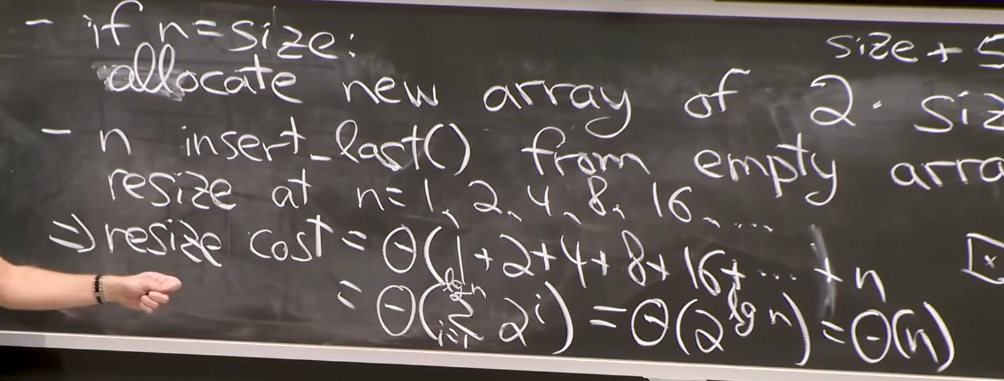 - if n=size:
size + 5
allocate new array of 2 · siz
- n insert_last() from empty arra
resize at n=1, 2, 4, 8, 16, ...
⇒ resize cost = Θ(1+2+4+8+16+ ... + n
= Θ(∑ 2^i) = Θ(2^lg n) = Θ(n)